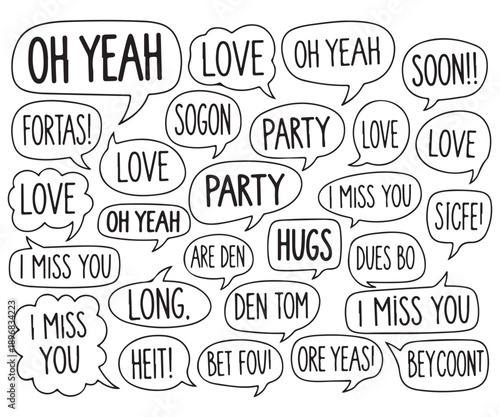 OH YEAH
LOVE
OH YEAH
SOON!!
FORTAS!
SOGON
PARTY
LOVE
LOVE
LOVE
LOVE
PARTY
I MISS YOU
SICFE!
OH YEAH
I MISS YOU
ARE DEN
HUGS
DUES BO
LONG.
DEN TOM
I MISS YOU
I MISS
YOU
HEIT!
BET FOU!
ORE YEAS!
BEYCOONT
Adobe Stock | #1896834223